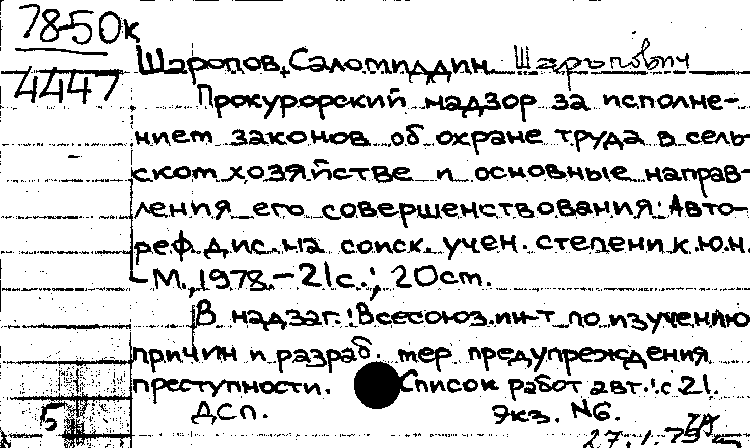 78-50к
4447
Шаропов, Саломиддин Шарыпович
Прокурорский надзор за исполне-
нием законов об охране труда в сель-
ском хозяйстве и основные направ-
ления его совершенствования: Авто-
реф. дис. на соиск. учен. степени к.ю.н.
- М., 1978. - 21с.; 20см.
В надзаг.: Всесоюз. ин-т по изучению
причин и разраб. мер предупреждения
преступности. Список работ авт.: с 21.
ДСП. Экз. №6.
5
27.1.79